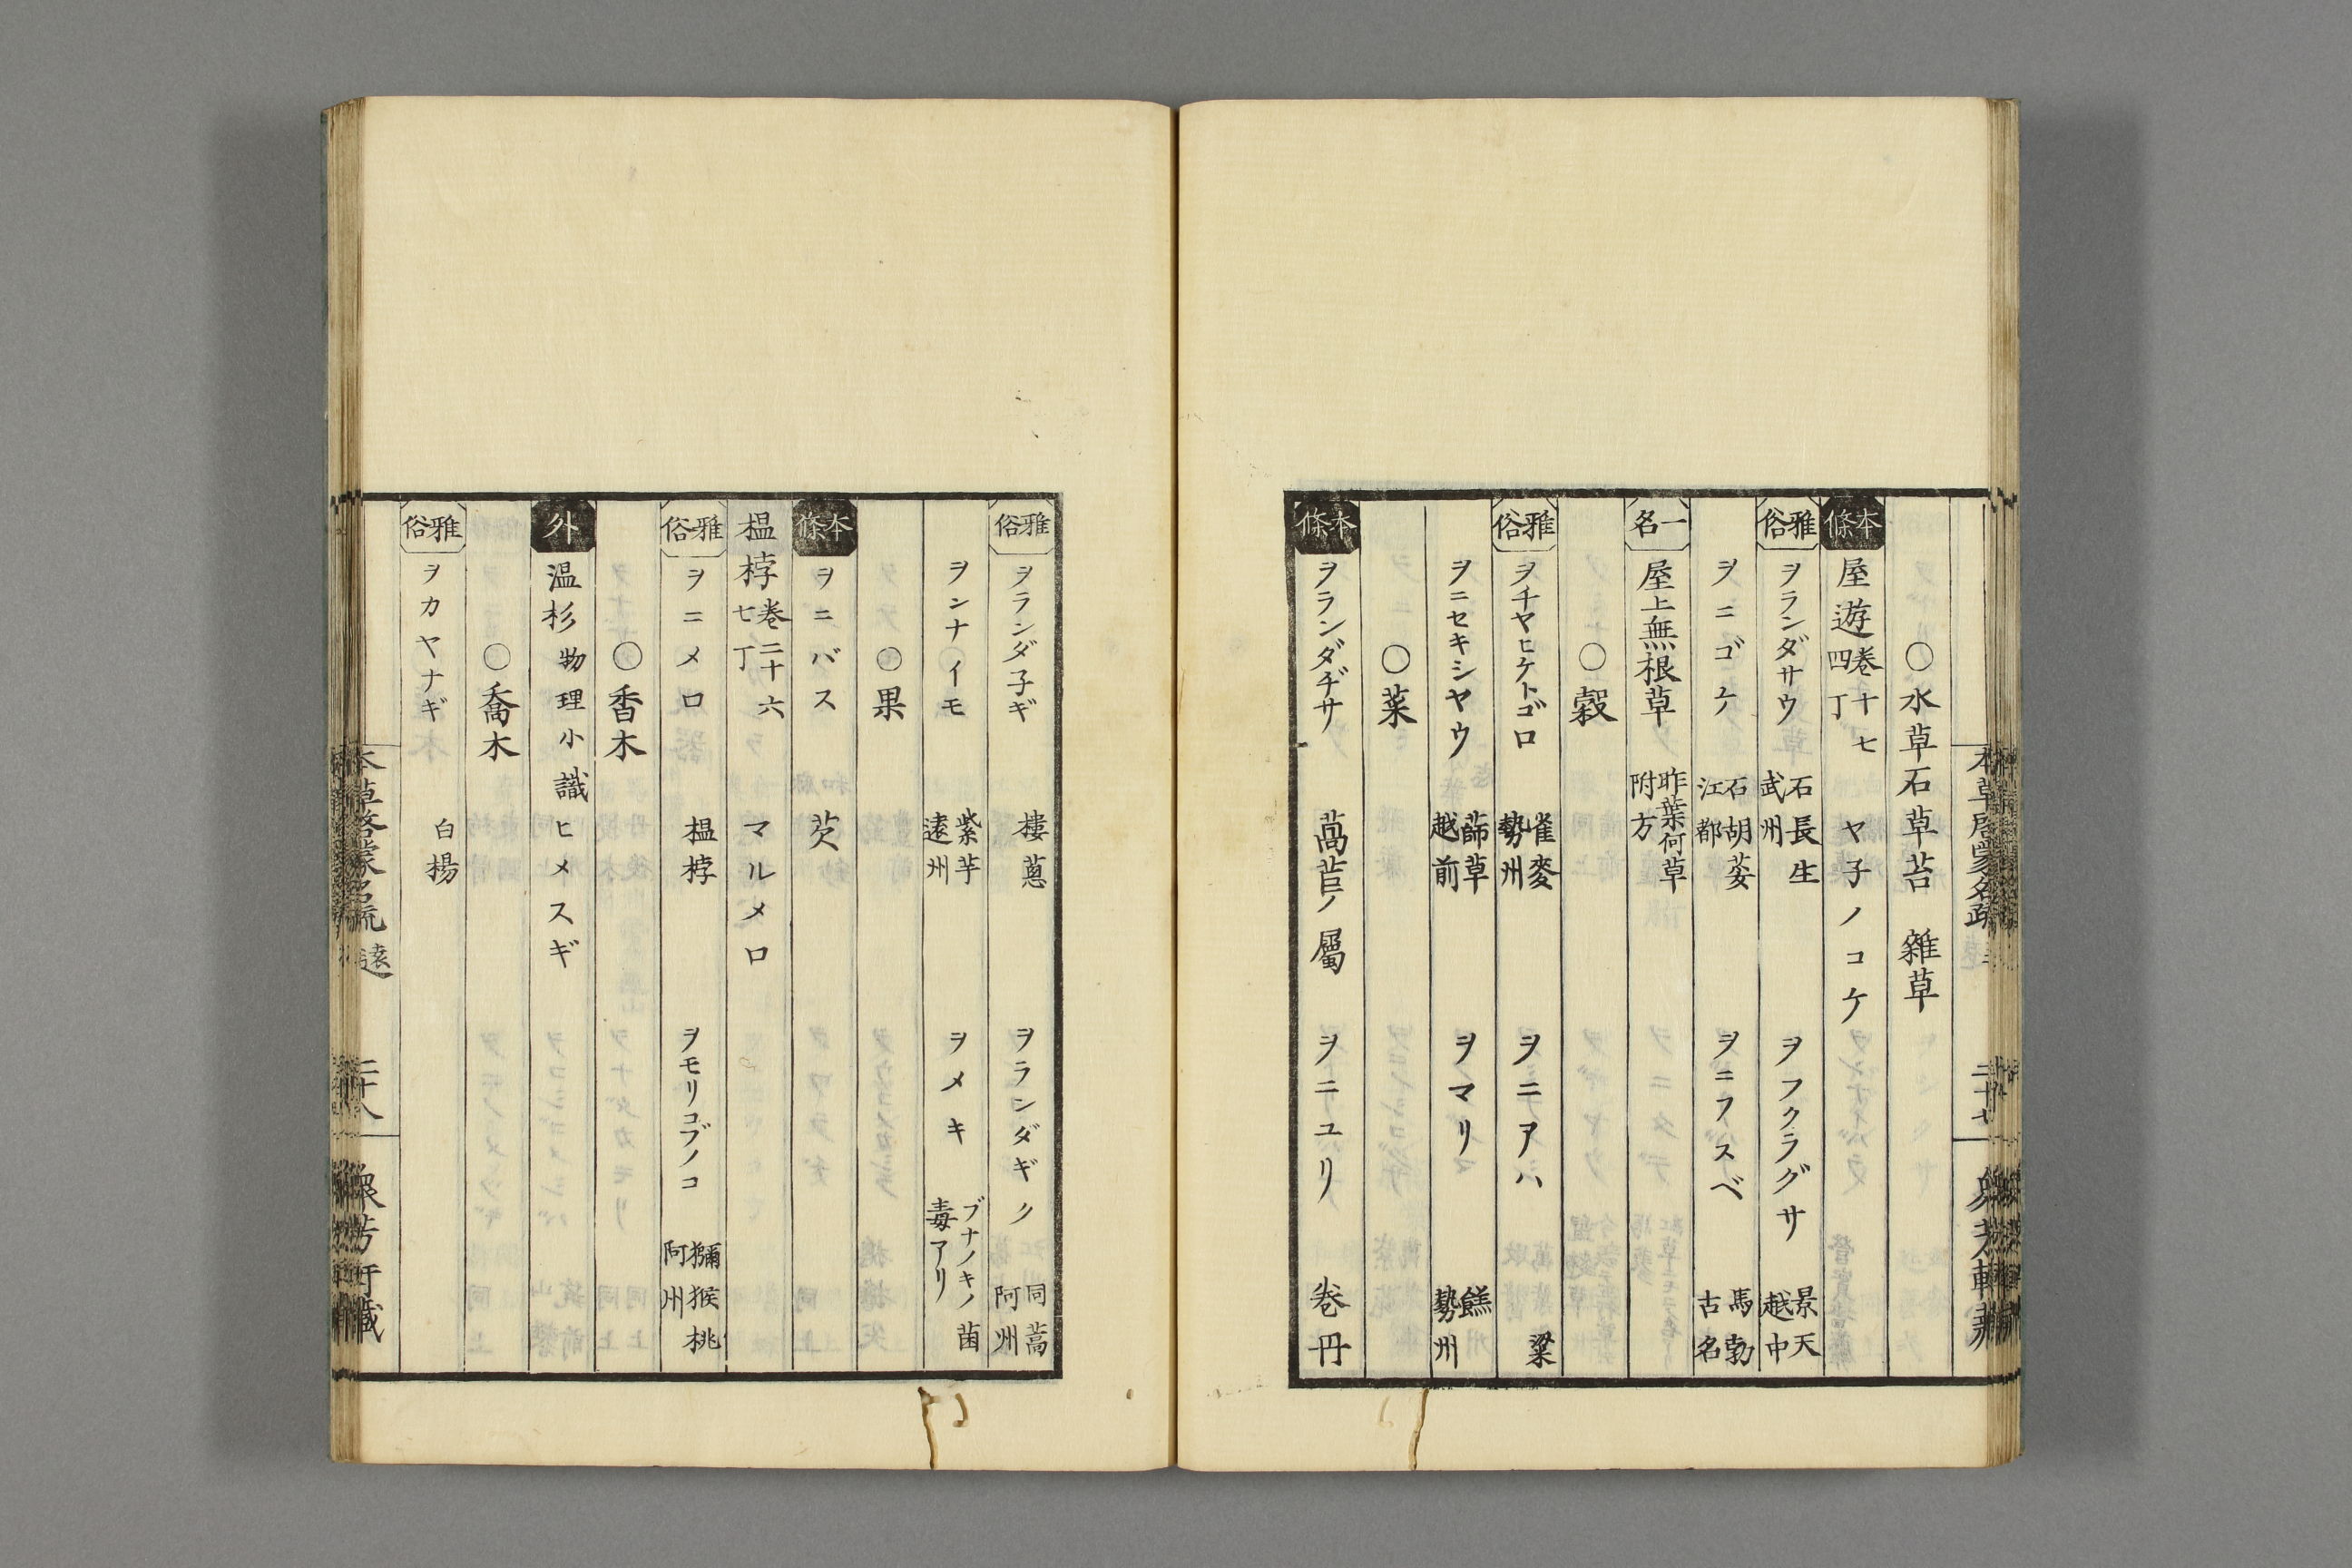 ○水草石草苔 雜草
本條 屋遊 卷十七 四丁 ヤ子ノコケ
雅俗 ヲランダサウ 石長生 武州 ヲフクラグサ 景天 越中
ヲニゴケ 石胡荽 江都 ヲニフスベ 馬勃 古名
一名 屋上無根草 昨葉何草 附方
○穀
雅俗 ヲチヤヒケトゴロ 雀麥 勢州 ヲニアハ 粱
ヲニセキシヤウ 蒒草 越前 ヲマリ 餻 勢州
○菜
本條 ヲランダヂサ 萵苣ノ屬 ヲニユリ 卷丹
雅俗 ヲランダ子ギ 樓蔥 ヲランダギク 同蒿 阿州
ヲンナイモ 紫芋 遠州 ヲメキ ブナノキノ菌 毒アリ
○果
本條 ヲニバス 芡
榲桲 卷二十六 七丁 マルメロ
雅俗 ヲニメロ 榲桲 ヲモリコブノコ 獼猴桃 阿州
○香木
外 温杉 物理小識 ヒメスギ
○喬木
雅俗 ヲカヤナギ 白楊